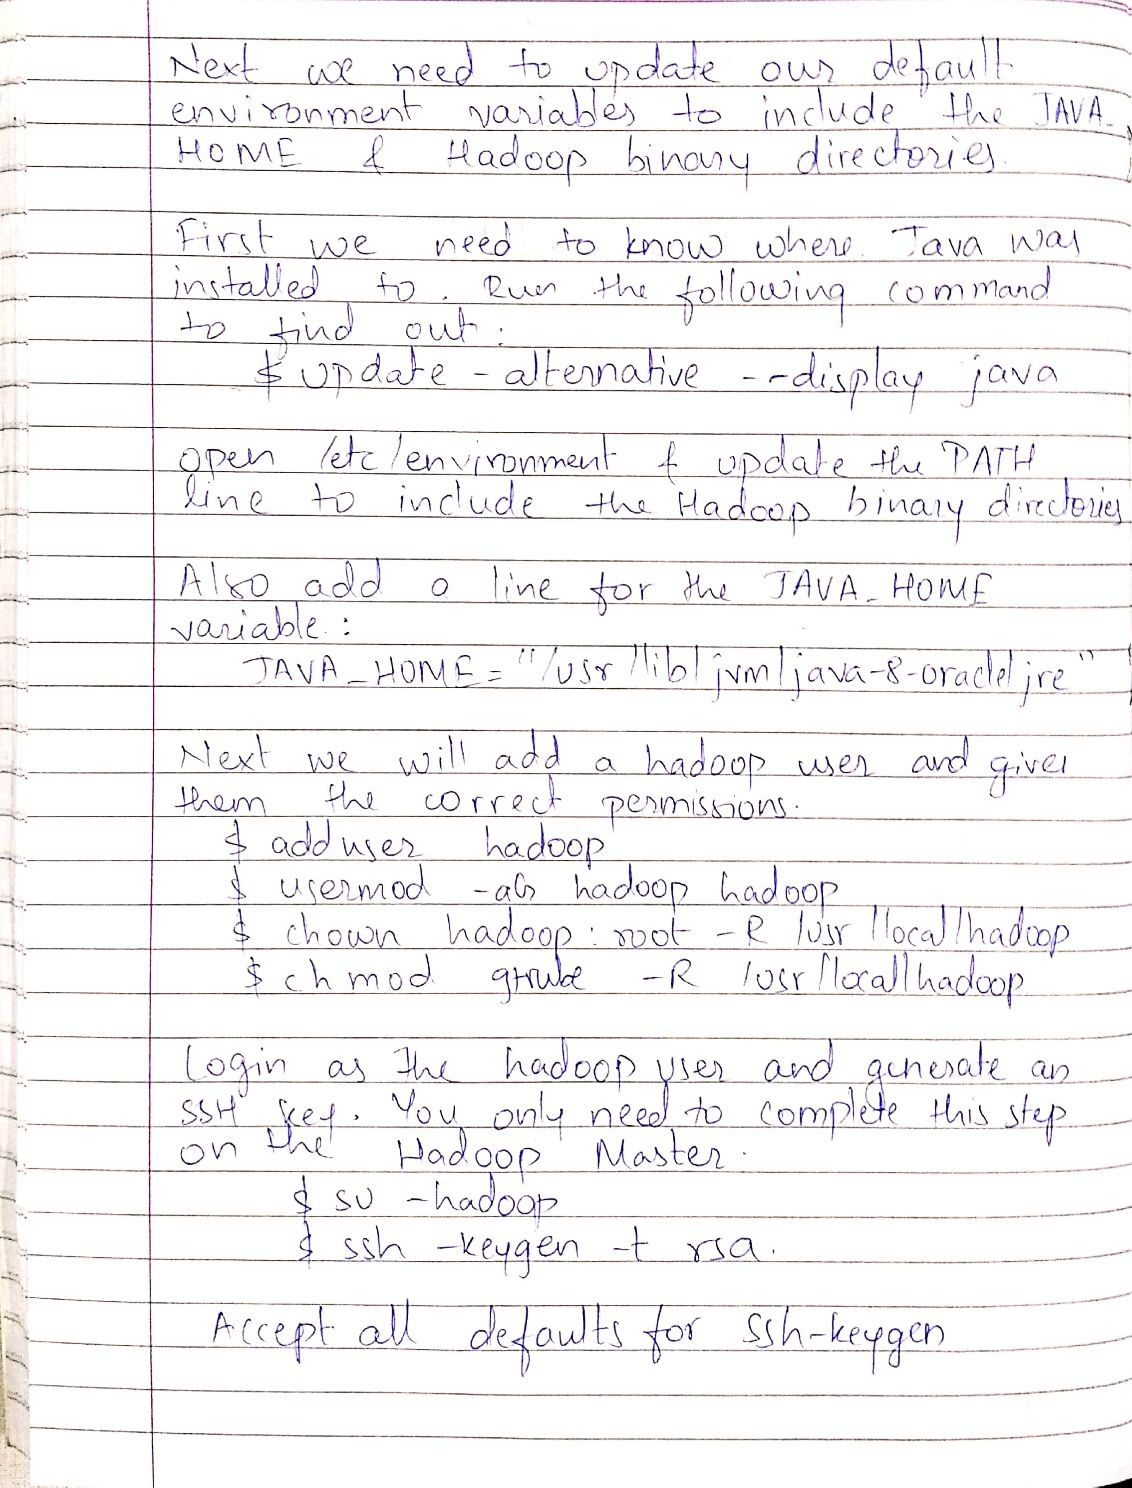 Next we need to update our default
environment variables to include the JAVA_
HOME & Hadoop binary directories.
First we need to know where Java was
installed to. Run the following command
to find out:
$ update - alternative --display java
open /etc/environment & update the PATH
line to include the Hadoop binary directories
Also add a line for the JAVA_HOME
variable:
JAVA_HOME = "/usr/lib/jvm/java-8-oracle/jre"
Next we will add a hadoop user and gives
them the correct permissions.
$ adduser hadoop
$ usermod -aG hadoop hadoop
$ chown hadoop:root -R /usr/local/hadoop
$ chmod -R /usr/local/hadoop
Login as the hadoop user and generate an
SSH key. You only need to complete this step
on the Hadoop Master.
$ su -hadoop
$ ssh -keygen -t rsa.
Accept all defaults for ssh-keygen